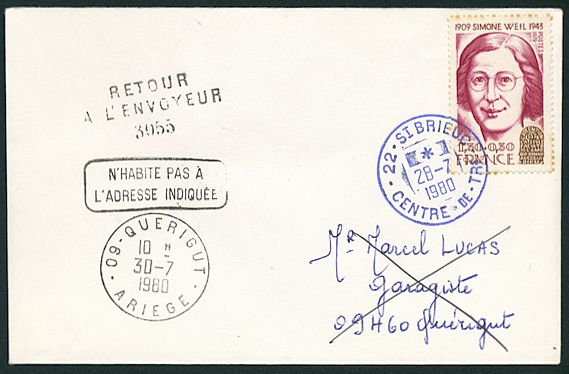 1909 SIMONE WEIL 1943
POSTES
1979
1,30+0,30
FRANCE
RETOUR
A L'ENVOYEUR
3955
N'HABITE PAS À
L'ADRESSE INDIQUÉE
22 - ST BRIEUC
28-7
1980
CENTRE-DE-TRI
09-QUERIGUT
10 H
30-7
1980
ARIEGE
Mr Marcel LUCAS
Garagiste
09460 Quérigut